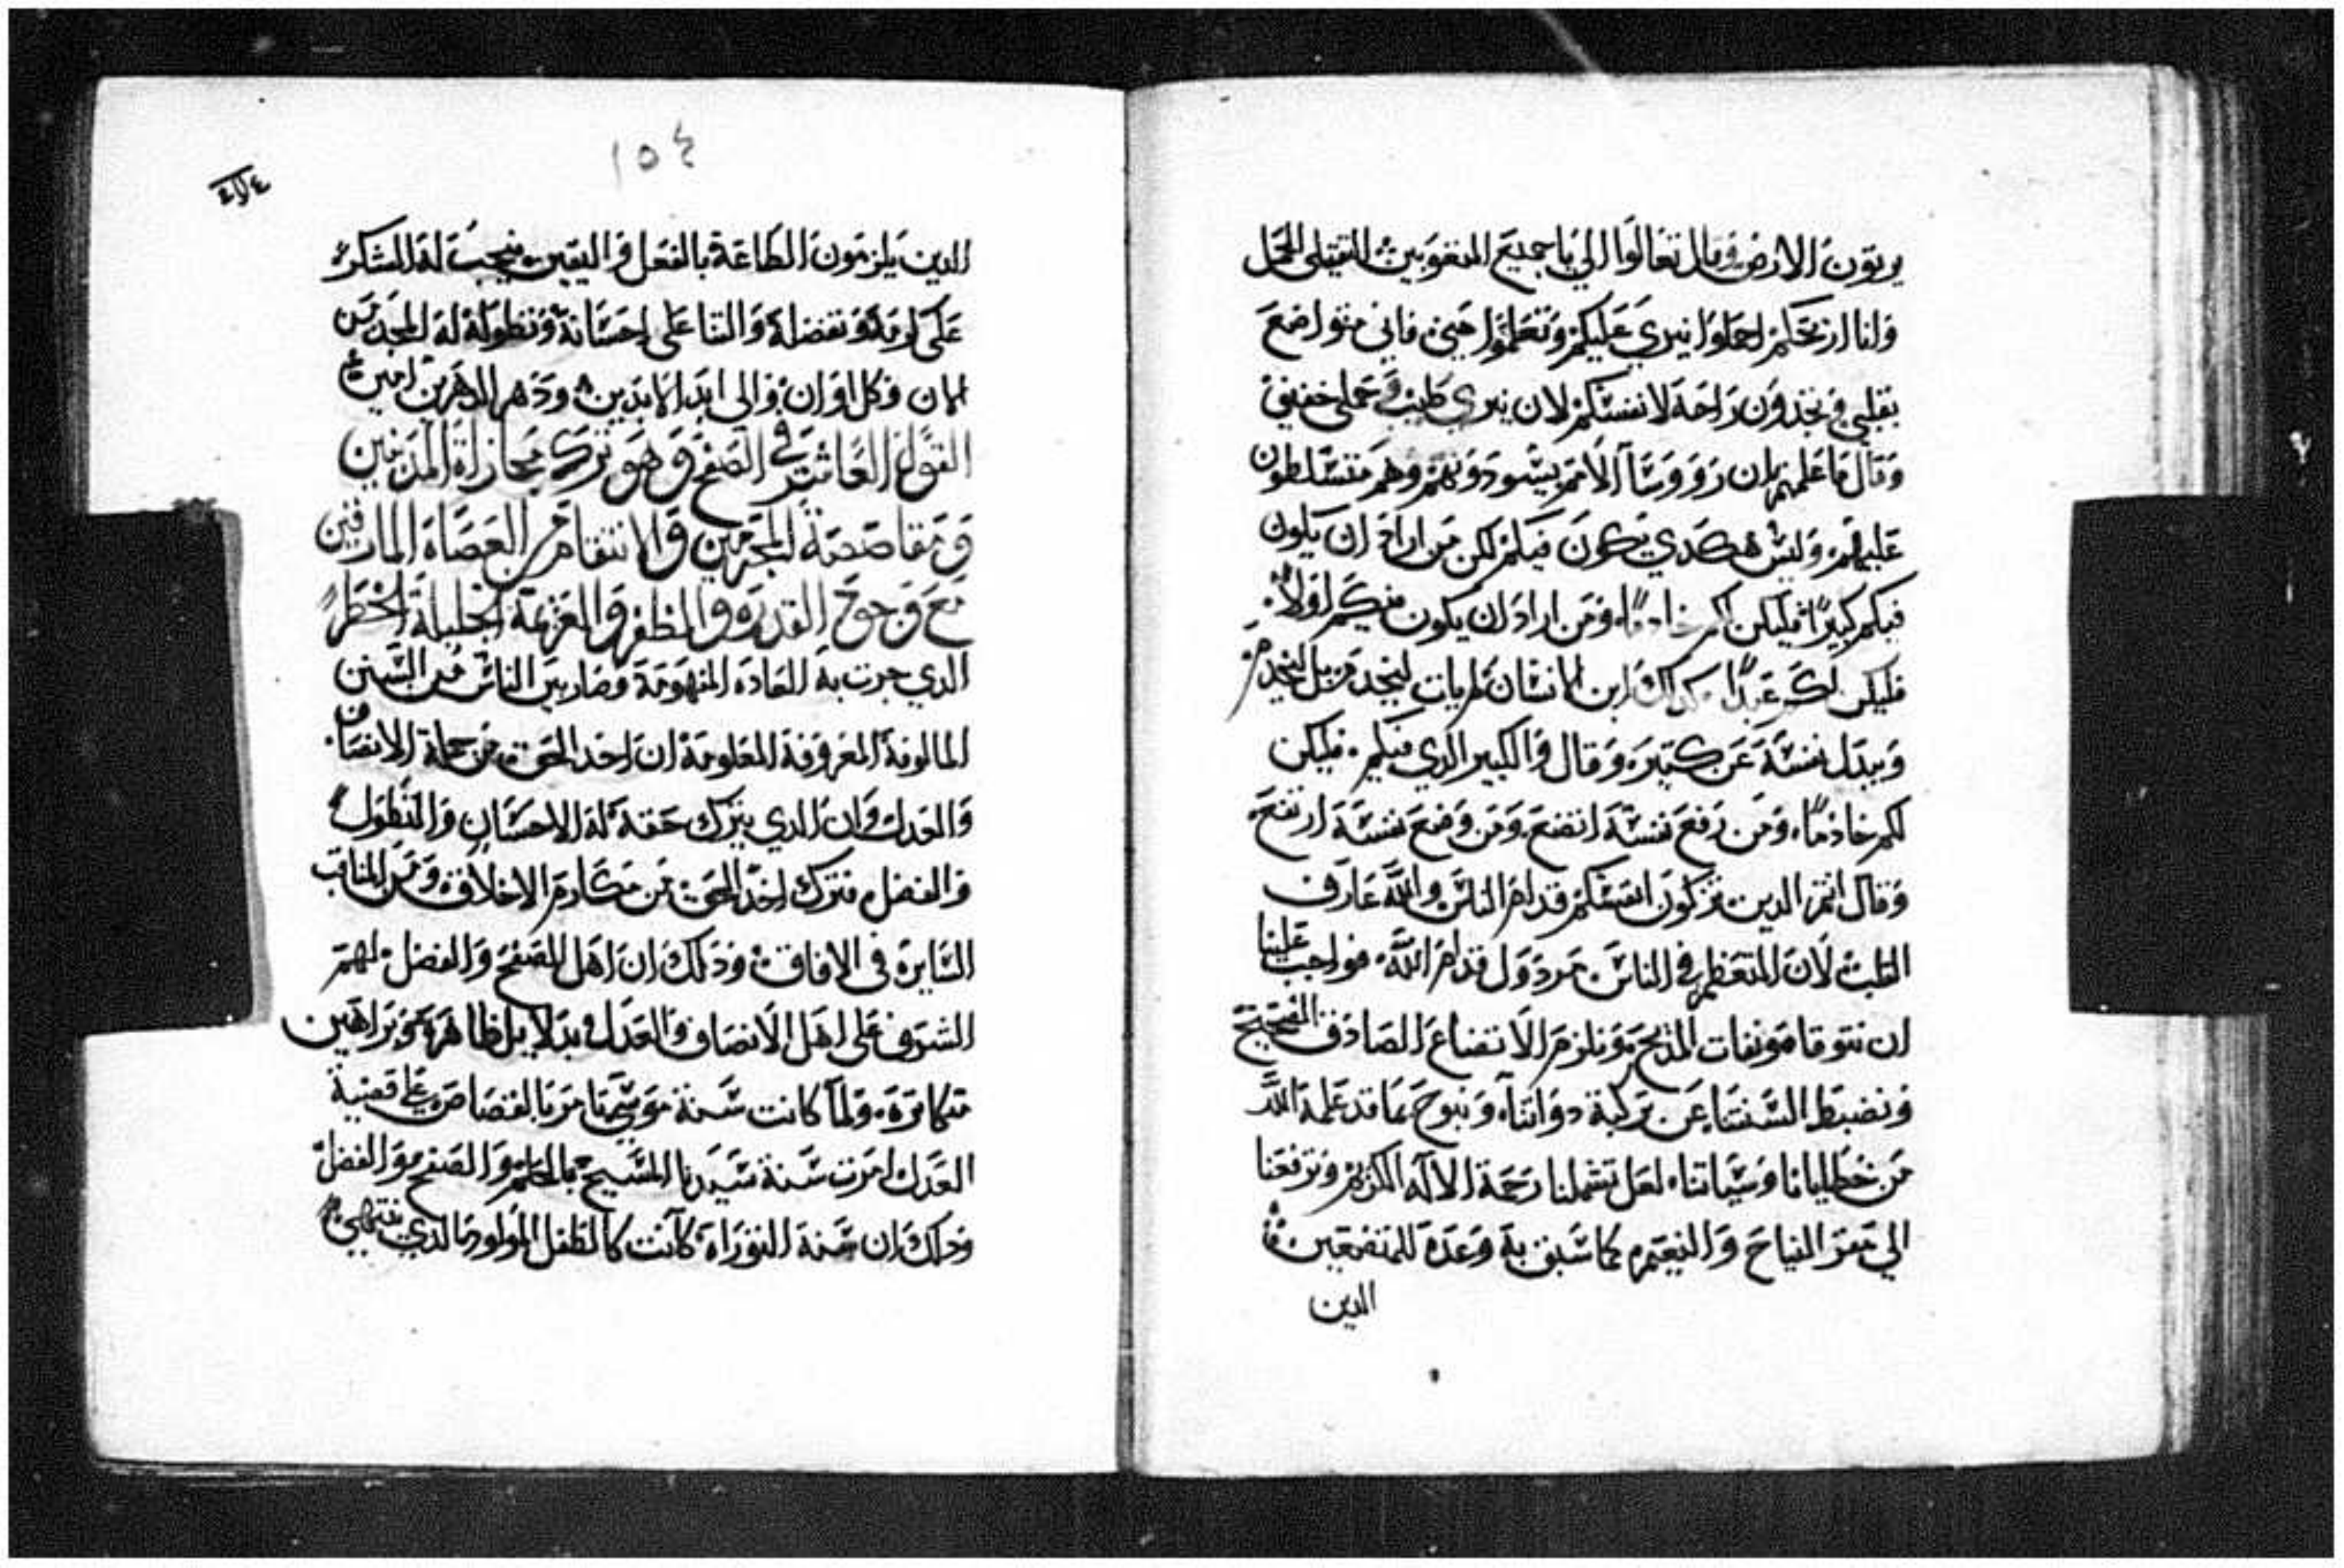 يرثون الارض وقال تعالوا الي يا جميع المتعوبين الثقيلي الحمل
وانا اريحكم احملوا نيري عليكم وتعلموا مني فاني متواضع
بقلبي فتجدون راحة لانفسكم لان نيري طيب وحملي خفيف
وقال ما علمتم بان رووسآ الامم يسودونهم وهم متسلطون
عليهم وليس هكدي يكون فيكم لكن من اراد ان يكون
فيكم كبيرًا فليكن لكم خادمًا ومن اراد ان يكون فيكم اولاً
فليكن لكم عبدًا كدلك ابن الانسان لم يات ليخدم بل ليخدم
ويبدل نفسه عن كتيره وقال والكبير الدي فيكم فليكن
لكم خادمًا ومن رفع نفسه اتضع ومن وضع نفسه ارتفع
وقال انتم الدين تزكون انفسكم قدام الناس والله عارف
لان المتعظم في الناس مردول قدام الله فواجب علينا
ان نتوقا مونفات المديح ونلزم الاتضاع الصادق الصحيح
ونضبط السنتنا عن تزكية دواتنا ونبوح بما قد علمه الله
من خطايانا وسياتنا لعل تشملنا رحمة الاله الكريم وترفعنا
الي مقر النياح والنعيم كما سبق به وعده للمتضعين
الدين
١٥٤
الدين يلزمون الطاعة بالفعل واليقين فيجب له الشكر
علي كرمه وتفضله والتنا علي احسانه وتطوله له المجد من
الان وكل اوان والي ابد الابدين ودهر الداهرين امين
القول العاشر في الصفح وهو ترك مجازاة المدنبين
ومقاصصة المجرمين والانتقام من العصاة المارقين
مع وجود القدره والظفر والعزيمة الجليلة الخطر
الدي جرت به العاده المفهومة وصار بين الناس من السنن
المالوفة المعروفة المعلومة ان احد الحق من جملة الانصاف
والعدل وان الدي يترك حقه له الاحسان والتطول
والفضل فترك احد الحق من مكارم الاخلاق ومن المناقب
السايره في الافاق ودلك ان اهل الصفح والفضل لهم
الشرف علي اهل الانصاف والعدل بدلايل ظاهره وبراهين
متكاتره ولما كانت سنة موسي تامر بالقصاص علي قضية
العدل امرت سنة سيدنا المسيح بالحلم والصفح والفضل
ودلك ان سنة التوراة كانت كالطفل المولود الدي ينتهي